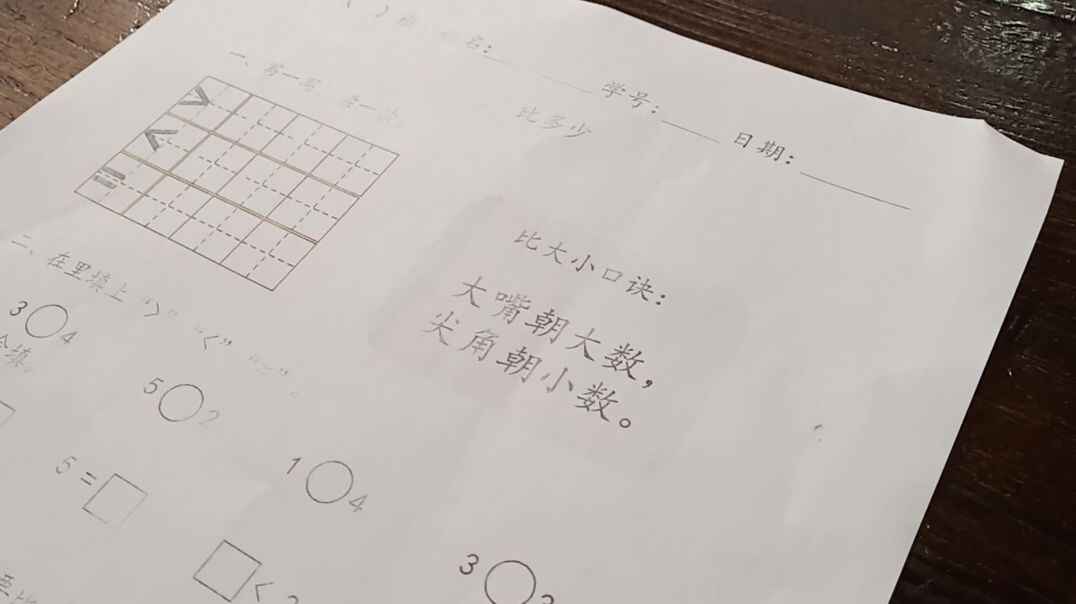 名：______ 学号：____ 日期：______
比多少
一、写一写
> 
<
=
比大小口诀：
大嘴朝大数，
尖角朝小数。
二、在里填上“>” “<” “=”。
3○4
5○2
1○4
3○
填。
5=□
□<